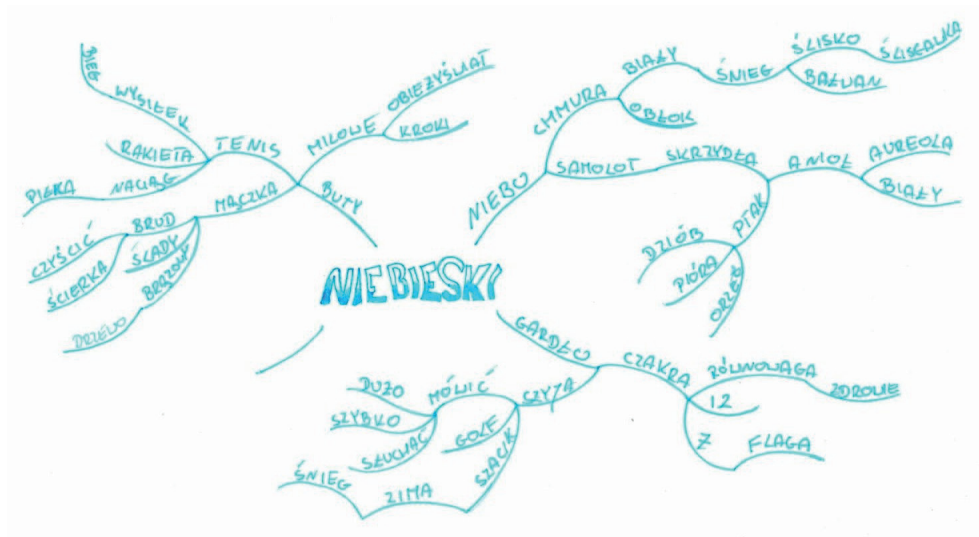 NIEBIESKI
BUTY
MILOWE
OBIEŻYŚWIAT
KROKI
TENIS
WYSIŁEK
BIEG
RAKIETA
NACIĄG
PIŁKA
MĄCZKA
BRUD
CZYŚCIĆ
ŚCIERKA
ŚLADY
BRĄZOWY
DRZEWO
NIEBO
CHMURA
BIAŁY
ŚNIEG
ŚLISKO
ŚLISGAWKA
BAŁWAN
OBŁOK
SAMOLOT
SKRZYDŁA
ANIOŁ
AUREOLA
BIAŁY
PTAK
DZIÓB
PIÓRA
ORZEŁ
GARDŁO
CZAKRA
RÓWNOWAGA
ZDROWIE
12
Z
FLAGA
MÓWIĆ
DUŻO
SZYBKO
SŁUCHAĆ
GOLF
SZALIK
ZIMA
ŚNIEG